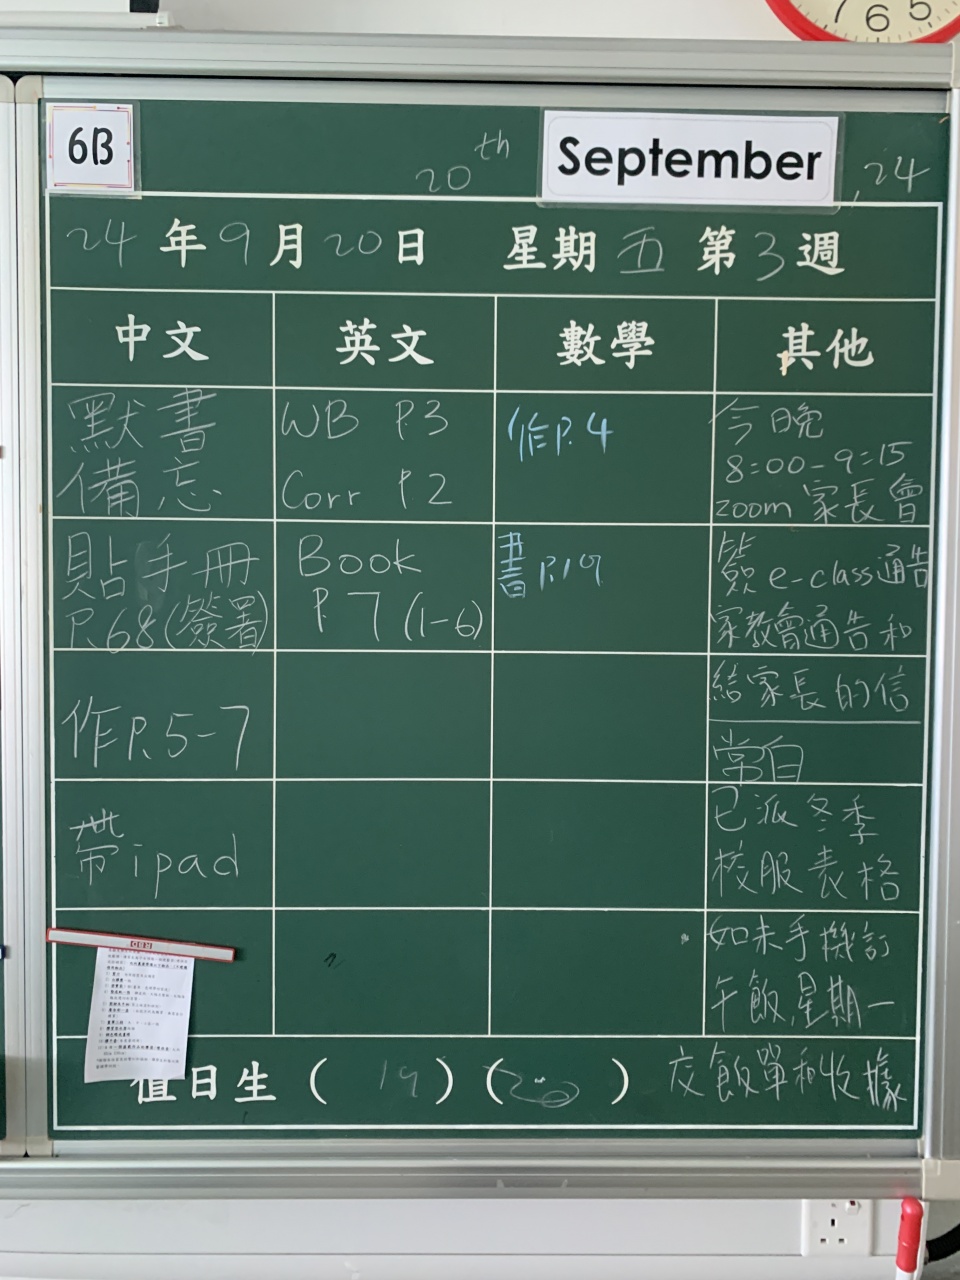 7 6 5
6B
20th September, 24
24年9月20日 星期五 第3週
中文
默書
備忘
貼手冊
P.68(簽署)
作P.5-7
帶ipad
英文
WB P.3
Corr P.2
Book
P.7 (1-6)
數學
作P.4
書P.19
其他
今晚
8:00-9:15
zoom 家長會
簽e-class通告
家教會通告和
給家長的信
常白
已派冬季
校服表格
如未手機訂
午飯,星期一
交飯單和收據
值日生 ( 19 ) ( 20 )